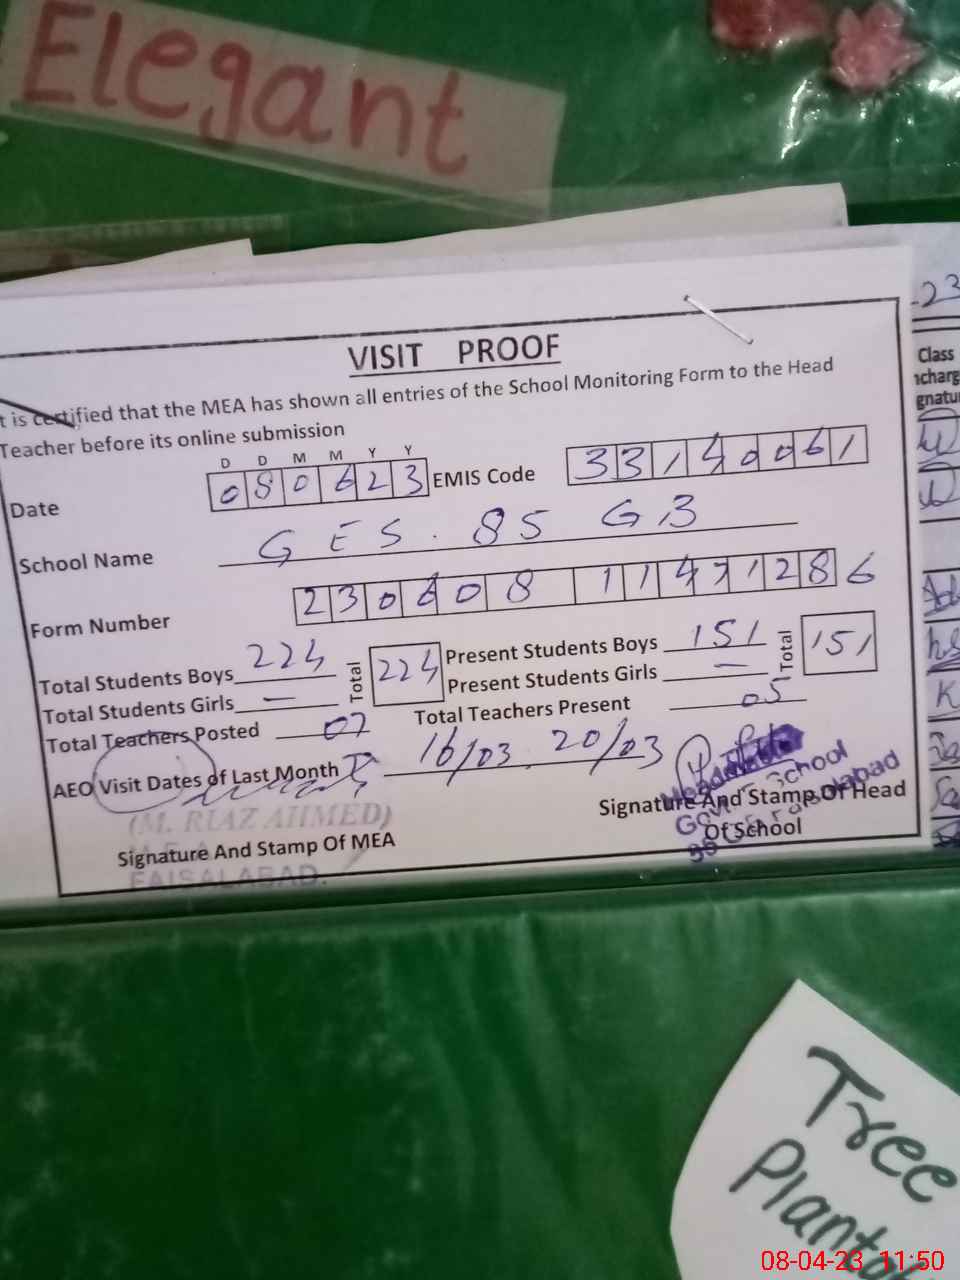 Elegant
VISIT PROOF
t is certified that the MEA has shown all entries of the School Monitoring Form to the Head
Teacher before its online submission
D D M M Y Y
Date 080623 EMIS Code 33140061
School Name GES. 85 GB
Form Number 230608 11471286
Total Students Boys 224 Total 224 Present Students Boys 151 Total 151
Total Students Girls — Present Students Girls —
Total Teachers Posted 07 Total Teachers Present 05
AEO Visit Dates of Last Month 16/03 . 20/03
(M. RIAZ AHMED)
Signature And Stamp Of MEA
FAISALABAD.
Signature And Stamp Of Head
Of School
-23
Class
ncharg
gnatur
Tree
Planta
08-04-23 11:50